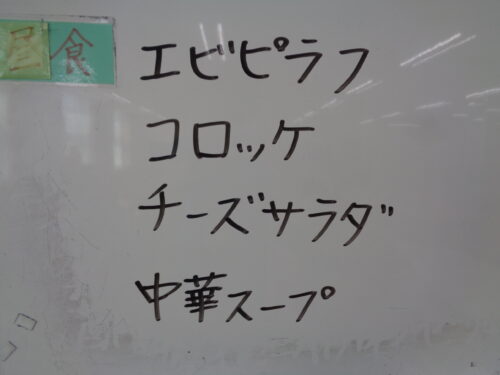 昼食
エビピラフ
コロッケ
チーズサラダ
中華スープ